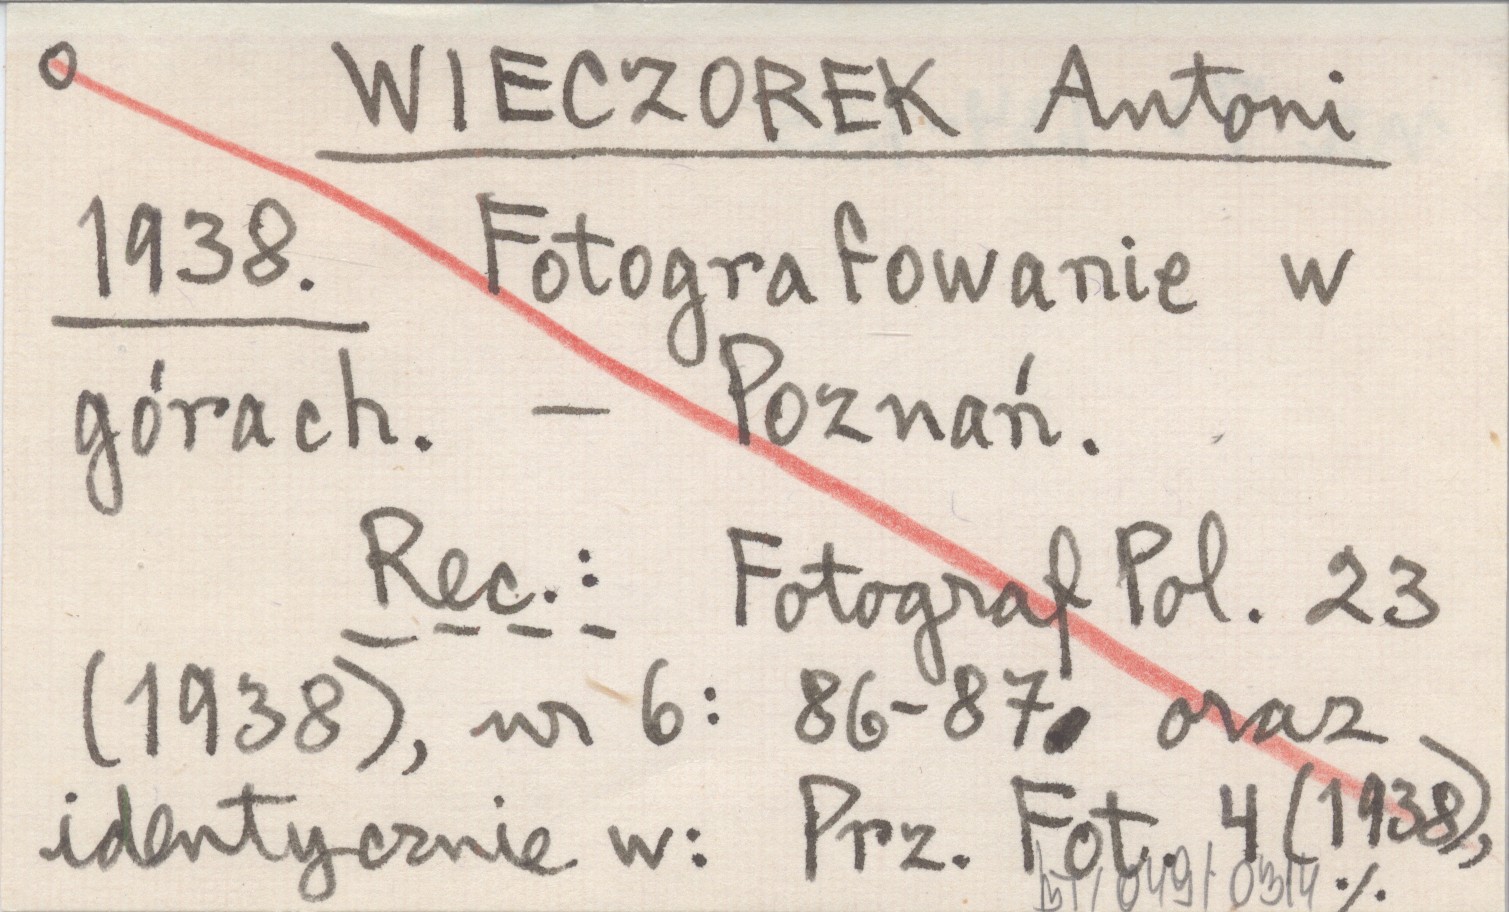 WIECZOREK Antoni
1938. Fotografowanie w
górach. — Poznań.
Rec.: Fotograf Pol. 23
(1938), nr 6: 86-87. oraz
identycznie w: Prz. Fot. 4 (1938),
BT/049/0314 ./.